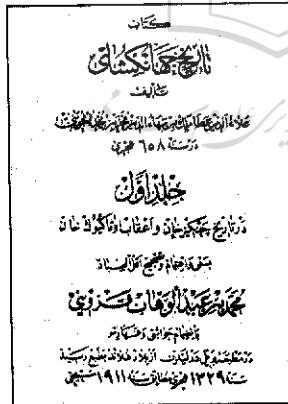 کتاب
تاریخ جهانگشای
تألیف
علاء الدین عطا ملك بن بهاء الدین محمد بن محمد الجوینی
در سنهٔ ٦٥٨ هجری
جلد اول
در تاریخ چنگیز خان و اعقاب او تا کیوك خان
بسعی و اهتمام و تصحیح اقل العباد
محمد بن عبد الوهاب قزوینی
با انضمام حواشی و فهارس
در مطبعهٔ بریل در لیدن از بلاد هلاند بطبع رسید
سنهٔ ١٣٢٩ هجری مطابق سنهٔ ١٩١١ مسیحی